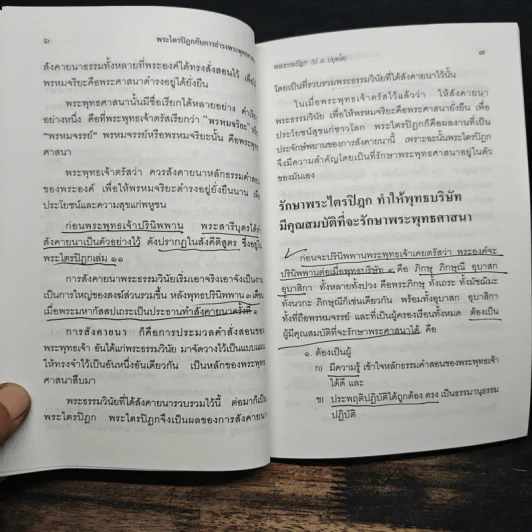 ๖
พระไตรปิฎกกับการธำรงพระพุทธศาสนา
สังคายนาธรรมทั้งหลายที่พระองค์ได้ทรงสั่งสอนไว้ เพื่อให้
พรหมจริยะคือพระศาสนาดำรงอยู่ได้ยั่งยืน
พระพุทธศาสนานั้นมีชื่อเรียกได้หลายอย่าง คำเรียก
อย่างหนึ่ง คือที่พระพุทธเจ้าตรัสเรียกว่า "พรหมจริยะ" หรือ
"พรหมจรรย์" พรหมจรรย์หรือพรหมจริยะนั้น คือพระพุทธ
ศาสนา
พระพุทธเจ้าตรัสว่า ควรสังคายนาหลักธรรมคำสอน
ของพระองค์ เพื่อให้พรหมจริยะดำรงอยู่ยั่งยืนนาน เพื่อ
ประโยชน์และความสุขแก่พหูชน
ก่อนพระพุทธเจ้าปรินิพพาน พระสารีบุตรได้ทำ
สังคายนาเป็นตัวอย่างไว้ ดังปรากฏในสังคีติสูตร ซึ่งอยู่ใน
พระไตรปิฎกเล่ม ๑๑
การสังคายนาพระธรรมวินัยเริ่มเอาจริงเอาจังเป็นงาน
เป็นการใหญ่ของสงฆ์ส่วนรวมขึ้น หลังพุทธปรินิพพาน ๓ เดือน
เมื่อพระมหากัสสปเถระเป็นประธานทำสังคายนาครั้งที่ ๑
การสังคายนา ก็คือการประมวลคำสั่งสอนของ
พระพุทธเจ้า อันได้แก่พระธรรมวินัย มาจัดวางไว้เป็นแบบแผน
ให้ทรงจำไว้เป็นอันหนึ่งอันเดียวกัน เป็นหลักของพระพุทธ
ศาสนาสืบมา
พระธรรมวินัยที่ได้สังคายนารวบรวมไว้นี้ ต่อมาก็เป็น
พระไตรปิฎก พระไตรปิฎกจึงเป็นผลของการสังคายนา
พระธรรมปิฎก (ป. อ. ปยุตฺโต)
๗
โดยเป็นที่รวบรวมพระธรรมวินัยที่ได้สังคายนาไว้นั้น
ในเมื่อพระพุทธเจ้าตรัสไว้แล้วว่า ให้สังคายนา
พระธรรมวินัย เพื่อให้พรหมจริยะคือพระศาสนายั่งยืน เพื่อ
ประโยชน์สุขแก่ชาวโลก พระไตรปิฎกก็คือผลงานที่เป็น
ประจักษ์พยานของการสังคายนานี้ เพราะฉะนั้นพระไตรปิฎก
จึงมีความสำคัญโดยเป็นที่รักษาพระพุทธศาสนาอยู่ในตัว
ของมันเอง
รักษาพระไตรปิฎก ทำให้พุทธบริษัท
มีคุณสมบัติที่จะรักษาพระพุทธศาสนา
ก่อนจะปรินิพพานพระพุทธเจ้าเคยตรัสว่า พระองค์จะ
ปรินิพพานต่อเมื่อพุทธบริษัท ๔ คือ ภิกษุ ภิกษุณี อุบาสก
อุบาสิกา ทั้งหลายทั้งปวง คือพระภิกษุ ทั้งเถระ ทั้งมัชฌิมะ
ทั้งนวกะ ภิกษุณีก็เช่นเดียวกัน พร้อมทั้งอุบาสก อุบาสิกา
ทั้งที่ถือพรหมจรรย์ และที่เป็นผู้ครองเรือนทั้งหมด ต้องเป็น
ผู้มีคุณสมบัติที่จะรักษาพระศาสนาได้ คือ
๑. ต้องเป็นผู้
ก) มีความรู้ เข้าใจหลักธรรมคำสอนของพระพุทธเจ้า
ได้ดี และ
ข) ประพฤติปฏิบัติได้ถูกต้อง ตรง เป็นธรรมานุธรรม
ปฏิบัติ